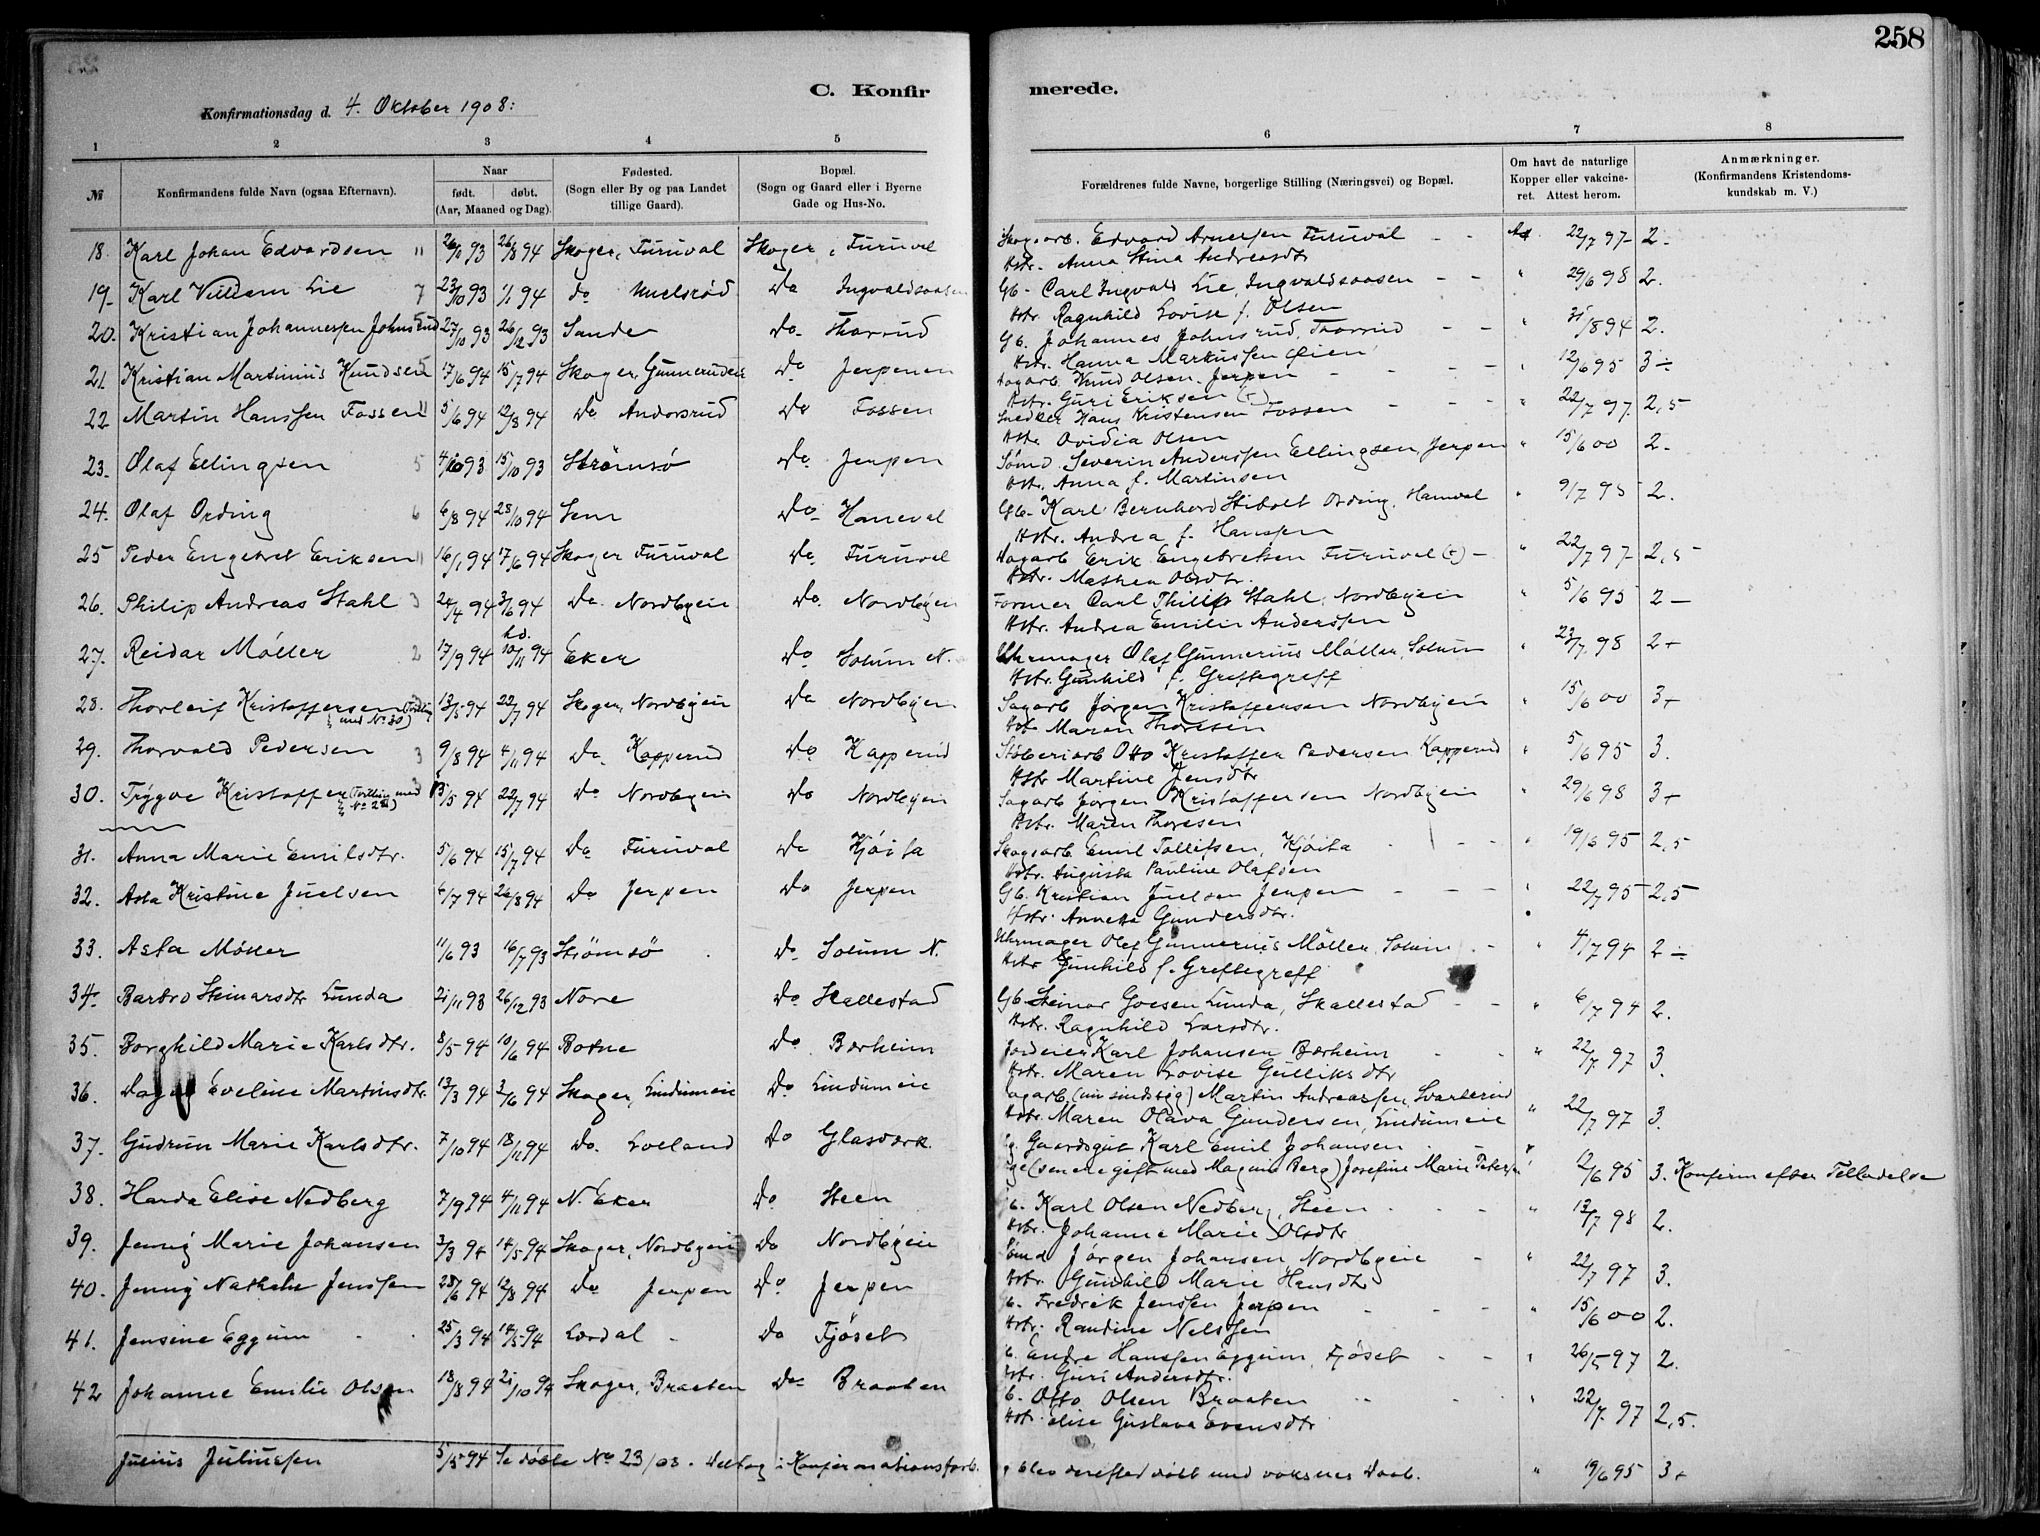 258
C. Konfirmerede.
Konfirmationsdag d. 4. Oktober 1908:
1 2 3 4 5 6 7 8
№
Konfirmandens fulde Navn (ogsaa Efternavn).
Naar
født. døbt.
(Aar, Maaned og Dag).
Fødested.
(Sogn eller By og paa Landet
tillige Gaard).
Bopæl.
(Sogn og Gaard eller i Byerne
Gade og Hus-No.
Forældrenes fulde Navne, borgerlige Stilling (Næringsvei) og Bopæl.
Om havt de naturlige
Kopper eller vakcine-
ret. Attest herom.
Anmærkninger.
(Konfirmandens Kristendoms-
kundskab m. V.)
18. Karl Johan Edvardsen 11 26/8 94 Skoger, Furuval Skoger, Furuval Skogsarb. Edvard Arnesen Furuval 22/7 97 2.
Hstr. Anna Stina Andreasdtr
19. Karl Villem Lie 7 23/10 93 1/1 94 do Do Ingvaldsaasen Gb. Carl Ingvald Lie, Ingvaldsaasen " 29/6 98 2.
Hstr. Ragnhild Lovise f. Olsen
20. Kristian Johannessen Johnsrud 27/10 93 26/12 93 Sande Do Thorrud Gb. Johannes Johnsrud, Thorrud " 31/8 94 2.
Hstr. Hanna Markussen Øien
21. Kristian Martinius Knudsen 5 17/6 94 15/7 94 Skoger, Gunnerudeie Do Jerpenen Dagarb. Knud Olsen Jerpen " 12/6 95 3÷
Hstr. Guri Eriksen (†)
22 Martin Hanssen Fossen 11 5/6 94 12/8 94 Do Andorsrud Do Fossen Snedker Hans Kristensen Fossen " 22/7 97 2,5
Hstr. Ovidia Olsen
23. Olaf Ellingsen 5 4/10 93 15/10 93 Strömsö Do Jerpen Sømd. Severin Anderssen Ellingsen, Jerpen " 15/6 00 2.
Hstr. Anna f. Martinsen
24. Olaf Ording 6 6/8 94 28/10 94 Sem Do Haneval Gb. Karl Bernhard Stibolt Ording, Haneval " 9/7 95 2.
Hstr. Andrea f. Hanssen
25 Peder Engebret Eriksen 11 16/1 94 17/6 94 Skoger Furuval Do Furuvel Dagarb Erik Engebretsen Furuvel (†) " 22/7 97 2,5
Hstr. Mathea Olsdtr.
26. Philip Andreas Stahl 3 24/4 94 3/6 94 Do Nordbyeie Do. Nordbyen Former Carl Philip Stahl, Nordbyeie " 5/6 95 2 –
Hstr. Andrea Emilie Anderssen
27. Reidar Möller 2 17/9 94 hd. 10/11 94 Eker Do Solum N. Uhrmager Olaf Gunnerius Möller, Solum 23/7 98 2+
Hstr. Gunhild f. Greftegreff
28. Thorleif Kristoffersen (Tvilling med No 30) 13/5 94 22/7 94 Skoger, Nordbyeie Do Nordbyen Sagarb Jörgen Kristoffersen Nordbyeie 15/6 00 3+
Hstr Maren Thoresen
29. Thorvald Pedersen 3 9/8 94 4/11 94 Do Kopperud Do Kapperud Støberiarb Otto Kristoffer Pedersen Kapperud " 5/6 95 3.
Hstr Martine Jensdtr
30. Trygve Kristoffersen (Tvilling med No 28) 13/5 94 22/7 94 Do Nordbyeie Do Nordbyen Sagarb Jörgen Kristoffersen Nordbyeie " 29/6 98 3+
Hstr. Maren Thoresen
31. Anna Marie Emilsdtr. 5/6 94 15/7 94 Do Furuval Do Kjöita Skogsarb. Emil Tollefsen, Kjöita 19/6 95 2,5
Hstr. Augusta Pauline Olafsen
32. Asta Kristine Juelsen 4/7 94 26/8 94 Do Jerpen Do Jerpen Gb. Kristian Juelsen Jerpen 22/7 95 2,5
Hstr. Annetta Gundersdtr.
33. Asta Möller 11/6 93 16/7 93 Strömsö Do Solum N. Uhrmager Olaf Gunnerius Möller, Solum " 4/7 94 2÷
Hstr Gunhild f. Greftegreff
34. Barbro Steinarsdtr Lunda 21/11 93 26/12 93 Nore Do Skallestad Gb. Steinar Lunda, Skallestad " 6/7 94 2.
Hstr. Ragnhild Larsdtr.
35. Borghild Marie Karlsdtr. 8/5 94 10/6 94 Botne Do Bærheim Jordeier Karl Johansen Bærheim " 22/7 97 3.
Hstr. Maren Lovise Gulliksdtr
36. Eveline Martinsdtr 13/3 94 3/6 94 Skoger, Lindumeie Do Lindumeie Dagarb (nu sindssyg) Martin Andreassen, Svarterud " 22/7 97 3.
Hstr Maren Olava Gundersen, Lindumeie
37. Gudrun Marie Karlsdtr. 7/10 94 18/11 94 do. Loeland Do Glasværk. Gaardsgut Karl Emil Johansen "
(senere gift med Magnus Berg) Josefine Marie 12/6 95 3. Konfirm efter Tilladelse
38. Harda Elise Nedberg 7/9 94 4/11 94 N. Eker Do Steen Gb. Karl Olsen Nedberg, Steen " 13/7 98 2.
Hstr. Johanne Marie Olsdtr
39. Jenny Marie Johansen 3/3 94 14/5 94 Skoger, Nordbyeie Do Nordbyeie Sömd Jørgen Johansen, Nordbyeie " 22/7 97 3.
Hstr. Gunhild Marie Hansdtr
40. Jenny Nathalie Jenssen 28/6 94 12/8 94 Do Jerpen Do Jerpen Gb. Fredrik Jenssen Jerpen " 15/6 00 2.
Hstr. Randine Nelssen
41. Jensine Eggum 25/3 94 14/5 94 Lærdal Do Fjöset Gb. Endre Hanssen Eggum, Fjöset 26/5 97 2.
Hstr. Guri Andersdtr.
42 Johanne Emilie Olsen 18/8 94 21/10 94 Skoger, Braaten Do Braaten Gb. Otto Olsen Braaten 22/7 97 2,5.
Hstr. Elise Gustava Evensdtr
Julius Juliussen 5/5 94 Se döbte No 23/08. Deltog i Konfirmationsforb. og blev derefter döbt med voksnes Daab. " 19/6 95 3+